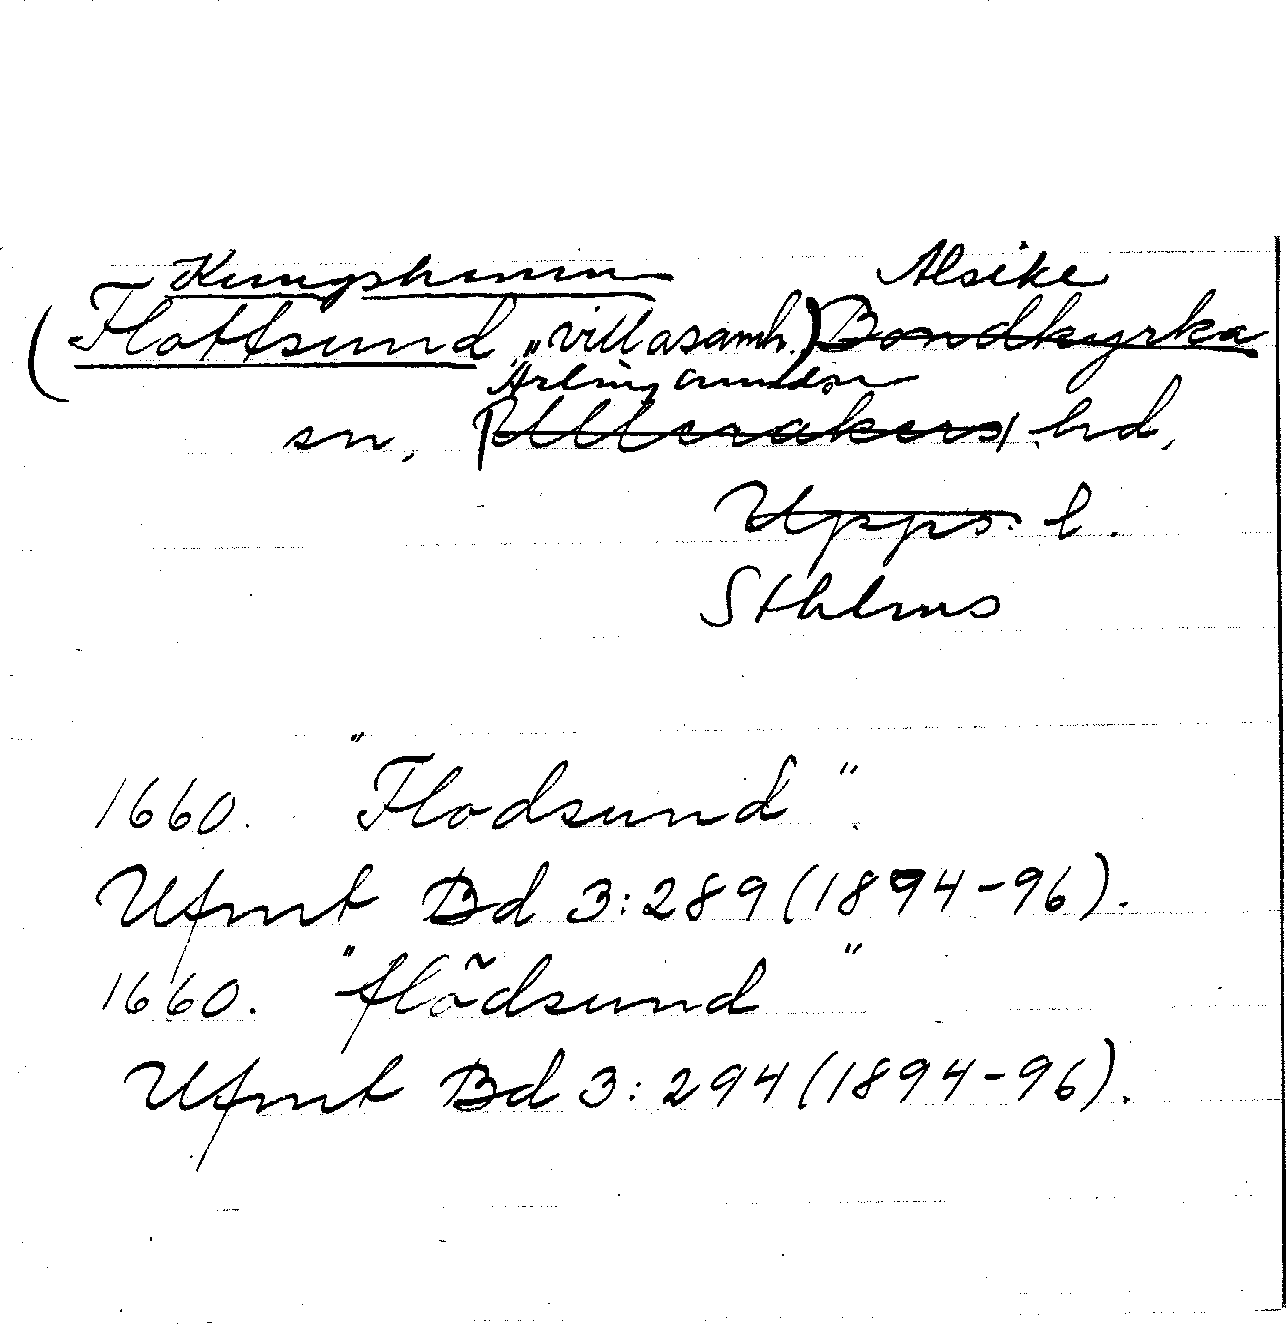 Kungshamn Alsike
(Flottsund „villasamh.) Bondkyrka
Ärlinghundra
sn, Ulleråkers hd,
Upps. l.
Sthlms
1660. "Flodsund".
Ufmt Bd 3:289 (1894-96).
1660. "flõdsund"
Ufmt Bd 3:294 (1894-96).